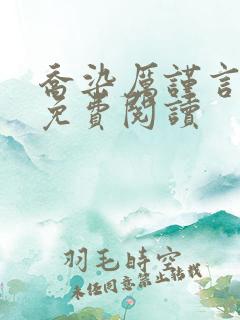 喬染厲謹言
免費閱讀
羽毛時空
未經同意禁止轉載